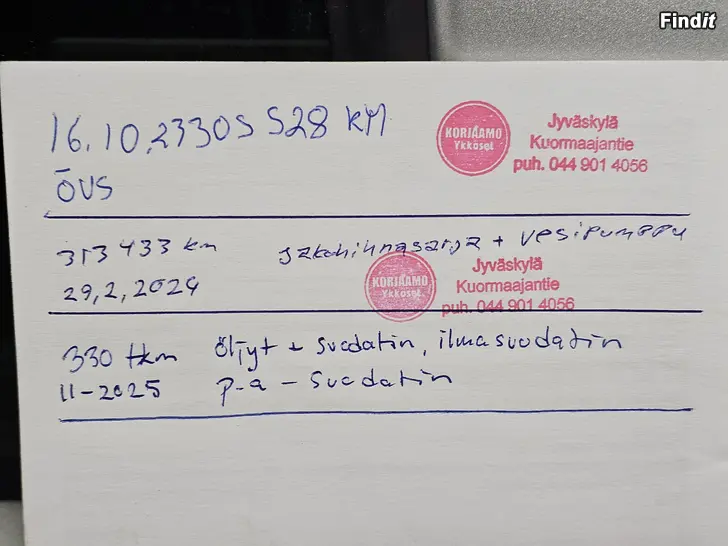 Findit
16.10.2330S S28 KM
ÖVS
KORJAAMO
Ykköset
Jyväskylä
Kuormaajantie
puh. 044 901 4056
313 433 km jakohihnasarja + vesipumppu
29,2,2024
KORJAAMO
Ykköset
Jyväskylä
Kuormaajantie
puh. 044 901 4056
330 tkm öljyt + suodatin, ilmasuodatin
11-2025 p-a - suodatin